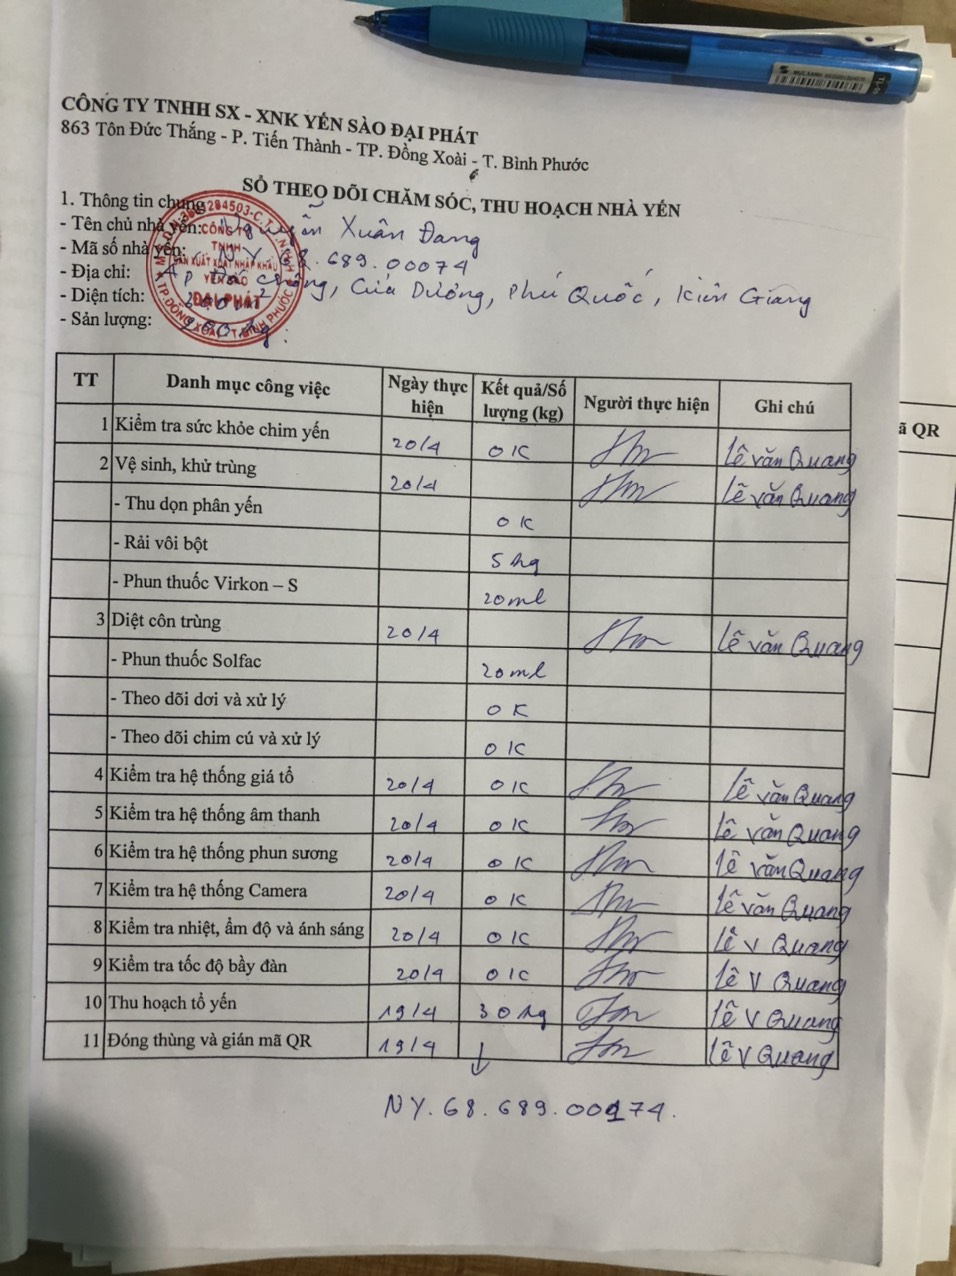 CÔNG TY TNHH SX - XNK YẾN SÀO ĐẠI PHÁT
863 Tôn Đức Thắng - P. Tiến Thành - TP. Đồng Xoài - T. Bình Phước
SỔ THEO DÕI CHĂM SÓC, THU HOẠCH NHÀ YẾN
1. Thông tin chung
- Tên chủ nhà yến: Nguyễn Xuân Đang
- Mã số nhà yến: NY.68.689.00074
- Địa chỉ: Ấp, Cửa Dương, Phú Quốc, Kiên Giang
- Diện tích:
- Sản lượng:
CÔNG TY
TNHH
SẢN XUẤT XUẤT NHẬP KHẨU
YẾN SÀO
ĐẠI PHÁT
TT Danh mục công việc Ngày thực hiện Kết quả/Số lượng (kg) Người thực hiện Ghi chú
1 Kiểm tra sức khỏe chim yến 20/4 OK Lê văn Quang
2 Vệ sinh, khử trùng 20/4 Lê văn Quang
- Thu dọn phân yến OK
- Rải vôi bột 5 kg
- Phun thuốc Virkon – S 20ml
3 Diệt côn trùng 20/4 Lê văn Quang
- Phun thuốc Solfac 20ml
- Theo dõi dơi và xử lý OK
- Theo dõi chim cú và xử lý OK
4 Kiểm tra hệ thống giá tổ 20/4 OK Lê văn Quang
5 Kiểm tra hệ thống âm thanh 20/4 OK Lê văn Quang
6 Kiểm tra hệ thống phun sương 20/4 OK Lê văn Quang
7 Kiểm tra hệ thống Camera 20/4 OK Lê văn Quang
8 Kiểm tra nhiệt, ẩm độ và ánh sáng 20/4 OK Lê V Quang
9 Kiểm tra tốc độ bầy đàn 20/4 OK Lê V Quang
10 Thu hoạch tổ yến 19/4 30 kg Lê V Quang
11 Đóng thùng và gián mã QR 19/4 ↓ Lê V Quang
NY.68.689.00174.
ã QR